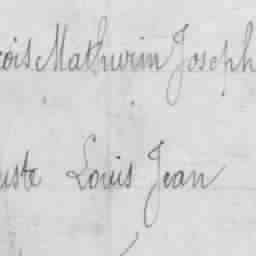 çois Mathurin Joseph
uste Louis Jean